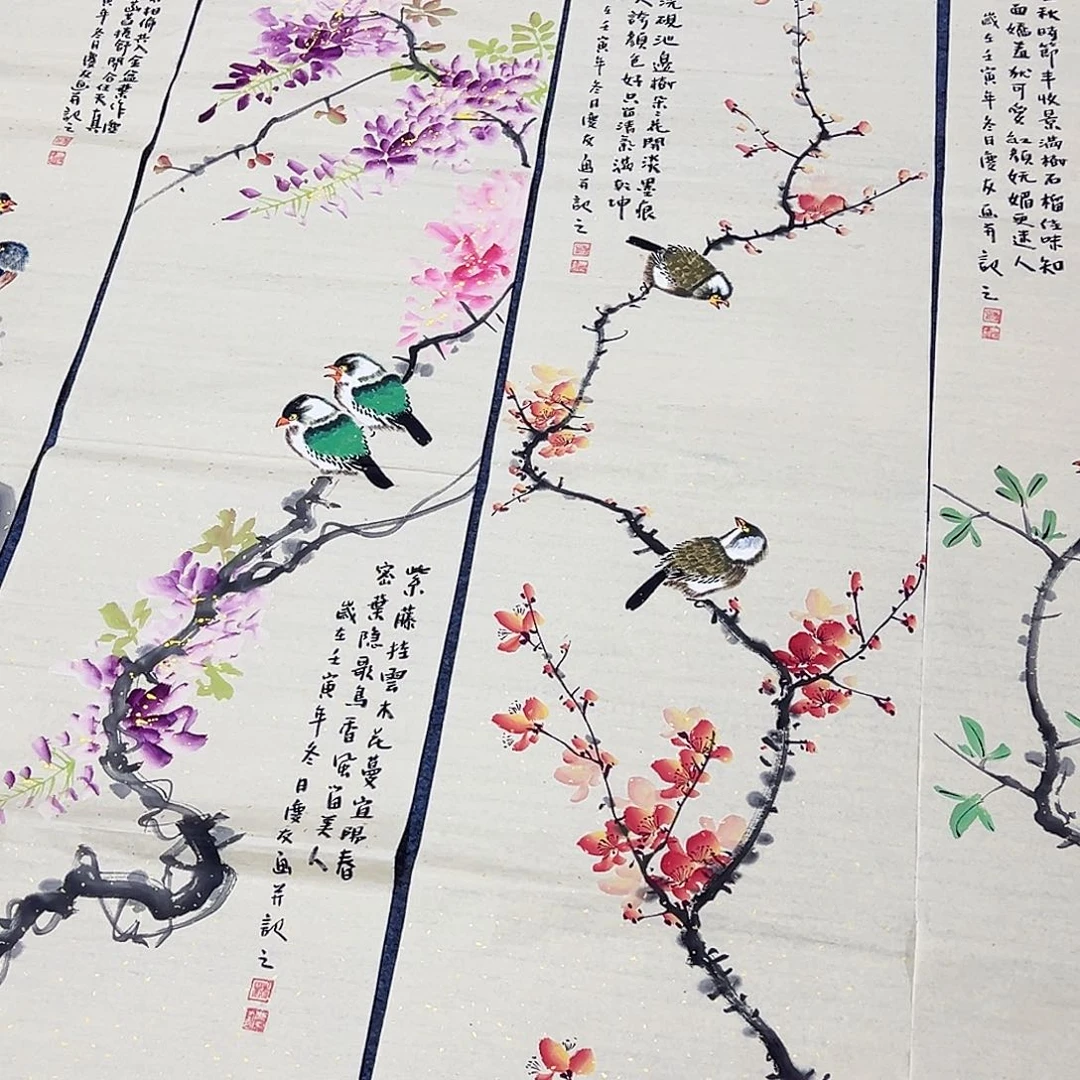 秋時節丰收景滿樹石榴佳味知
面嬌羞狀可愛紅顏妩媚更迷人
歲在壬寅年冬日慶友画并記之
洗硯池邊樹朵朵花開淡墨痕
人誇顏色好只留清氣滿乾坤
在壬寅年冬日慶友画并記之
紫藤挂雲木花蔓宜陽春
密葉隱歌鳥香風留美人
歲在壬寅年冬日慶友画并記之
入金盆葉作塵
菡萏捲舒開合任天真
寅年冬日慶友画并記之